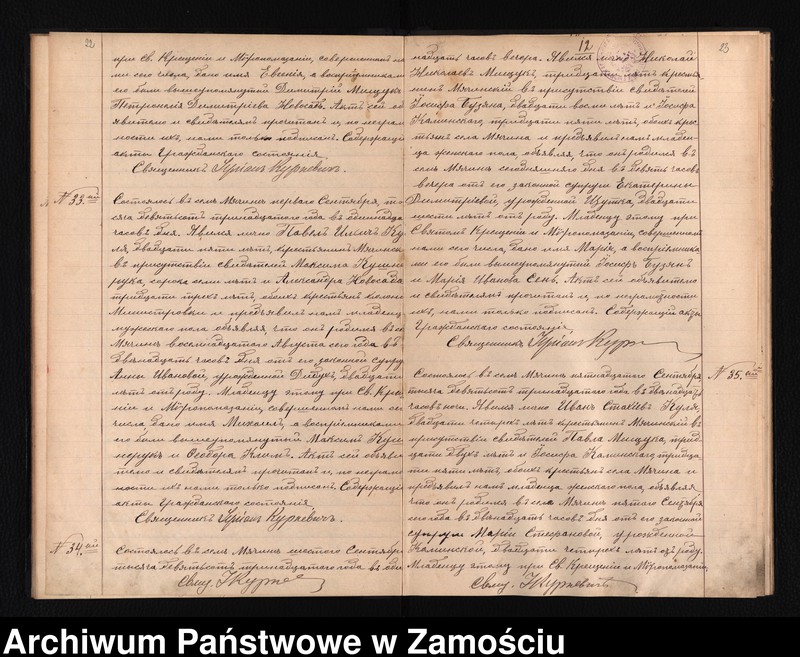 22
при Св. Крещеніи и Мѵропомазаніи, совершенномъ на-
ми сего числа, дано имя Евгенія, а воспріемниками
его были вышеупомянутый Димитрій Мищукъ
Петронелія Димитріева Новосадъ. Актъ сей об
явителю и свидѣтелямъ прочитанъ и, по неграм
мности ихъ, нами только подписанъ. Содержащій
акты Гражданскаго состоянія.
Священникъ Куркевичъ.
№ 33.ій
Состоялось въ селѣ Мягкинъ перваго Сентября, ты
сяча девятьсотъ тринадцатаго года въ одиннадца
часовъ дня. Явился лично Павелъ Ильичъ Ку
ля, двадцати пяти лѣтъ, крестьянинъ
въ присутствіи свидѣтелей Максима
сорока семи лѣтъ и Александра Новосада
тридцати трехъ лѣтъ, обоихъ крестьянъ колоніи
и предъявилъ намъ младенца
мужескаго пола объявляя, что онъ родился въ се
восемнадцатаго Августа сего года въ
двѣнадцать часовъ дня отъ его законной супру
Анны Ивановой, урожденной двадцати
лѣтъ отъ роду. Младенцу этому при Св. Кре
ніи и Мѵропомазаніи, совершенномъ нами се
числа дано имя Михаилъ, а воспріемниками
его были вышеупомянутый Максимъ
и Ѳеодора Климъ. Актъ сей объяви
телю и свидѣтелямъ прочитанъ и, по неграм
ности ихъ нами только подписанъ. Содержащій
акты Гражданскаго состоянія
Священникъ Куркевичъ.
№ 34.ый
Состоялось въ селѣ Мягкинъ шестого Сентября
тысяча девятьсотъ тринадцатаго года въ оди
Свящ.
12
23
надцать часовъ вечера. Явился лично Николай
Николаевъ Мищукъ, тридцати пять
въ присутствіи свидѣтелей
Іосифа двадцати восьми лѣтъ и Іосифа
Калинскаго, тридцати пяти лѣтъ, обоихъ крес
тьянъ села и предъявилъ намъ младен
ца женскаго пола, объявляя, что онъ родился въ
селѣ сегодняшняго дня въ девять часовъ
вечера отъ его законной супруги Екатерины
Димитріевой, урожденной двадцати
шести лѣтъ отъ роду. Младенцу этому при
Святомъ Крещеніи и Мѵропомазаніи, совершенномъ
нами сего числа, дано имя Марія, а воспріемника
ми его были вышеупомянутый Іосифъ
и Марія Иванова Сень. Актъ сей объявителю
и свидѣтелямъ прочитанъ и, по неграмотности
ихъ, нами только подписанъ. Содержащій акты
Гражданскаго состоянія.
Священникъ
№ 35.ый
Состоялось въ селѣ пятнадцатаго Сентября
тысяча девятьсотъ тринадцатаго года въ двѣнадцать
часовъ ночи. Явился лично Иванъ Куля,
двадцати четырехъ лѣтъ крестьянинъ въ
присутствіи свидѣтелей Павла Мищука, трид
цати двухъ лѣтъ и Іосифа Калинскаго, тридца
ти пяти лѣтъ, обоихъ крестьянъ села и
предъявилъ намъ младенца женскаго пола, объявляя
что онъ родился въ селѣ пятаго Сентября
сего года въ двѣнадцать часовъ дня отъ его законной
супруги Маріи Стефановой, урожденной
Калинской, двадцати четырехъ лѣтъ отъ роду.
Младенцу этому при Св. Крещеніи и Мѵропомазаніи,
Свящ. Куркевичъ
Archiwum Państwowe w Zamościu